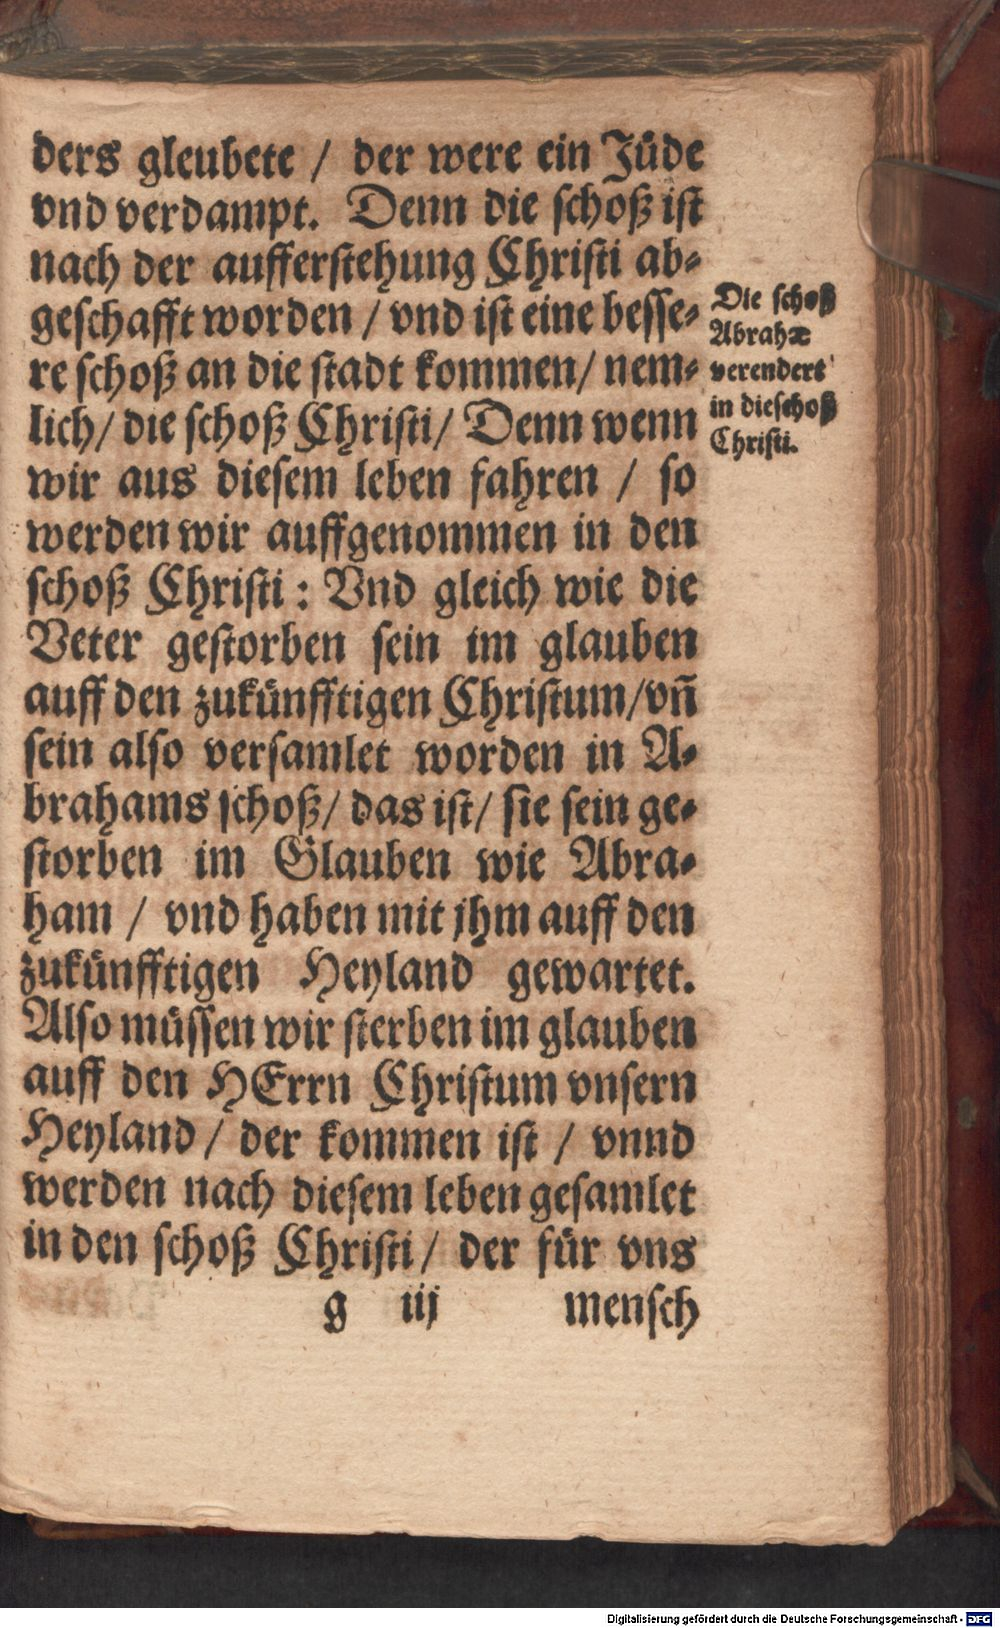 ders gleubete / der were ein Jüde
vnd verdampt. Denn die schoß ist
nach der aufferstehung Christi ab-
geschafft worden / vnd ist eine besse-
re schoß an die stadt kommen / nem-
lich / die schoß Christi / Denn wenn
wir aus diesem leben fahren / so
werden wir auffgenommen in den
schoß Christi : Vnd gleich wie die
Veter gestorben sein im glauben
auff den zukünfftigen Christum / vñ
sein also versamlet worden in A-
brahams schoß / das ist / sie sein ge-
storben im Glauben wie Abra-
ham / vnd haben mit jhm auff den
zukünfftigen Heyland gewartet.
Also müssen wir sterben im glauben
auff den HErrn Christum vnsern
Heyland / der kommen ist / vnnd
werden nach diesem leben gesamlet
in den schoß Christi / der für vns
g iij mensch
Die schoß
Abrahæ
verendert
in die schoß
Christi.
Digitalisierung gefördert durch die Deutsche Forschungsgemeinschaft - DFG